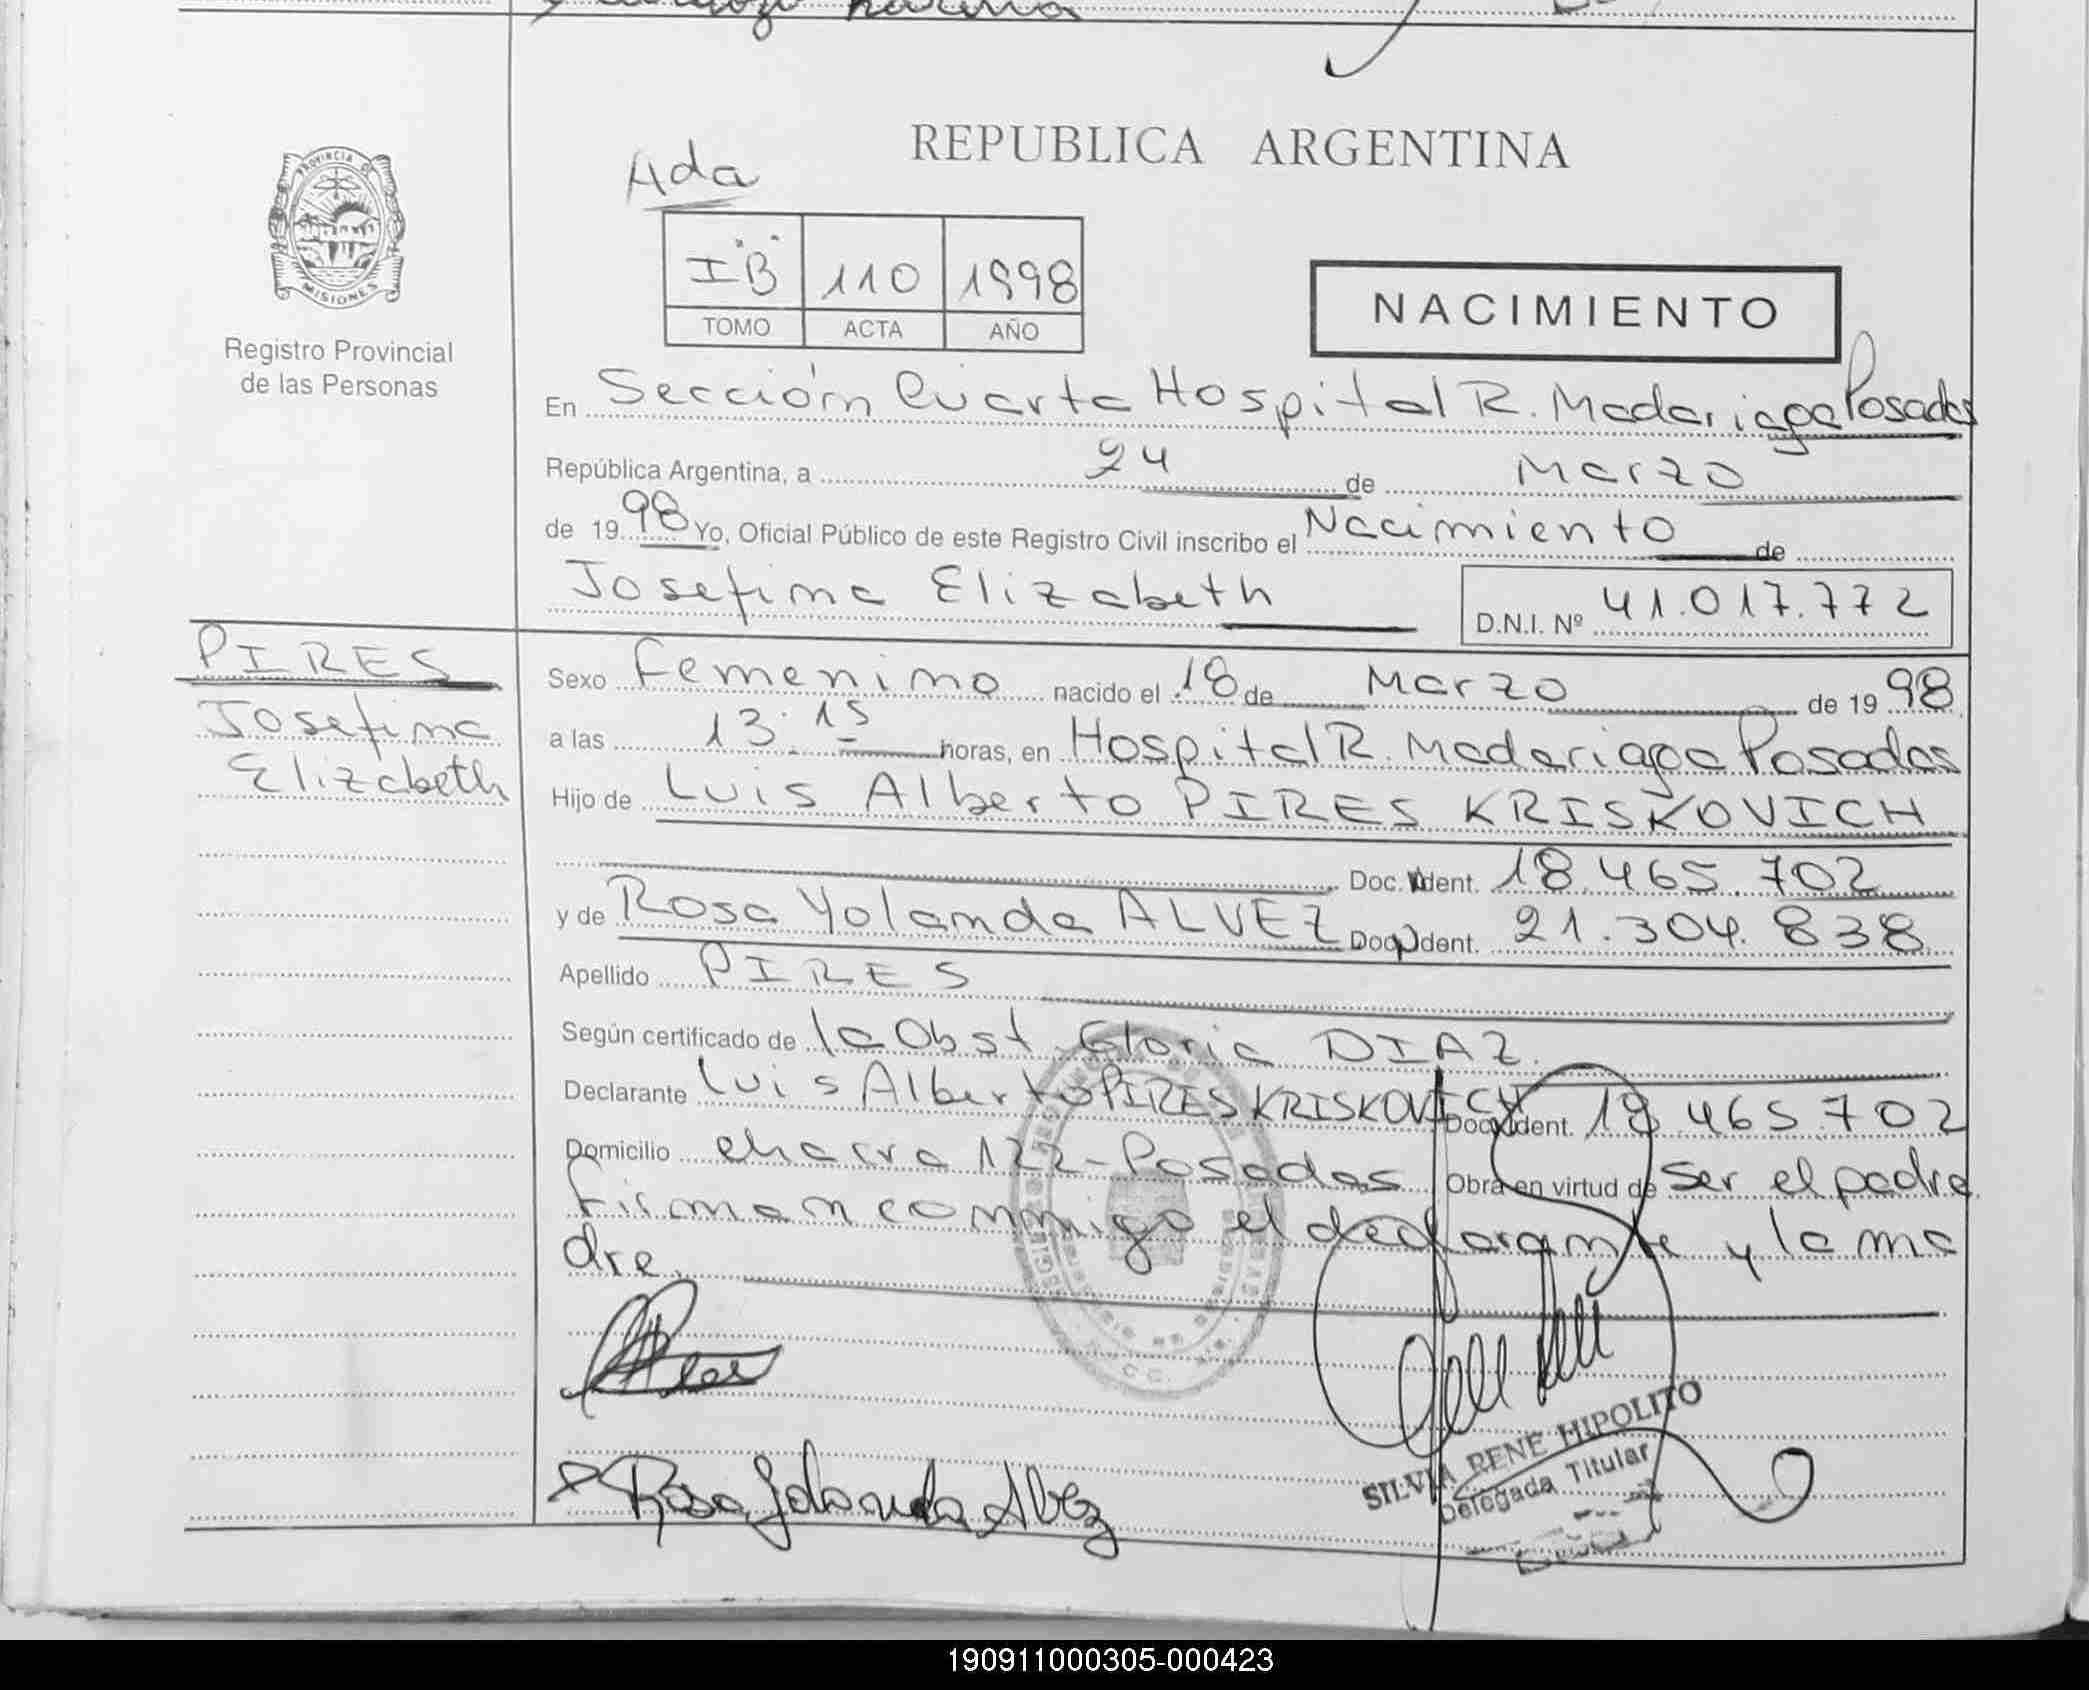 REPUBLICA ARGENTINA
Ada
PROVINCIA DE
MISIONES
Registro Provincial
de las Personas
I "B" 110 1998
TOMO ACTA AÑO
NACIMIENTO
En Sección Cuarta Hospital R. Madariaga Posadas
República Argentina, a 24 de Marzo
de 1998 Yo, Oficial Público de este Registro Civil inscribo el Nacimiento de
Josefina Elizabeth D.N.I. Nº 41.017.772
PIRES
Josefina
Elizabeth
Sexo Femenino nacido el 18 de Marzo de 1998
a las 13:15 horas, en Hospital R. Madariaga Posadas
Hijo de Luis Alberto PIRES KRISKOVICH
Doc. Ident. 18.465.702
y de Rosa Yolanda ALVEZ Doc. Ident. 21.304.838
Apellido PIRES
Según certificado de la Obst. Gloria DIAZ.
Declarante Luis Alberto PIRES KRISKOVICH Doc. Ident. 18 465 702
Domicilio chacra 122 - Posadas Obra en virtud de ser el padre
firman conmigo el declarante y la ma
dre.
Rosa Yolanda Alvez
SILVIA RENE HIPOLITO
Delegada Titular
190911000305-000423